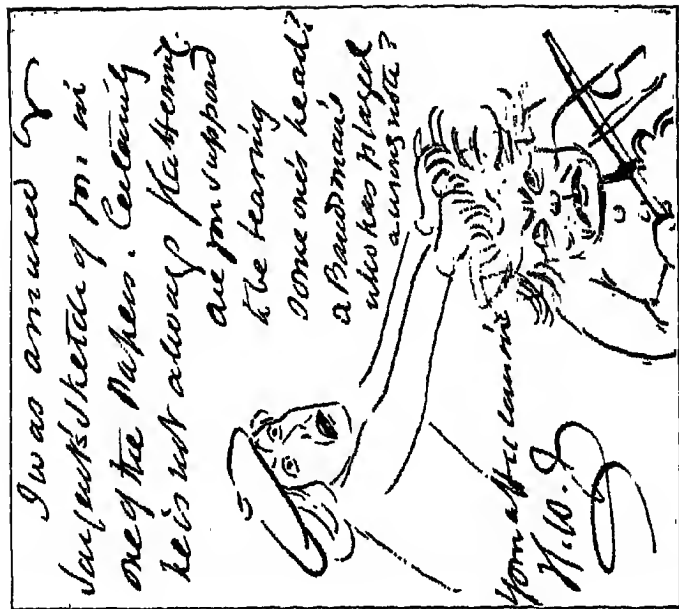 I was amused by
Sargent's sketch of you in
one of the Papers. Certainly
he is not always flattering.
are you supposed
to be tearing
some one's head?
a Bandsman's
who has played
a wrong note?
Your affec cousin
H. W. B